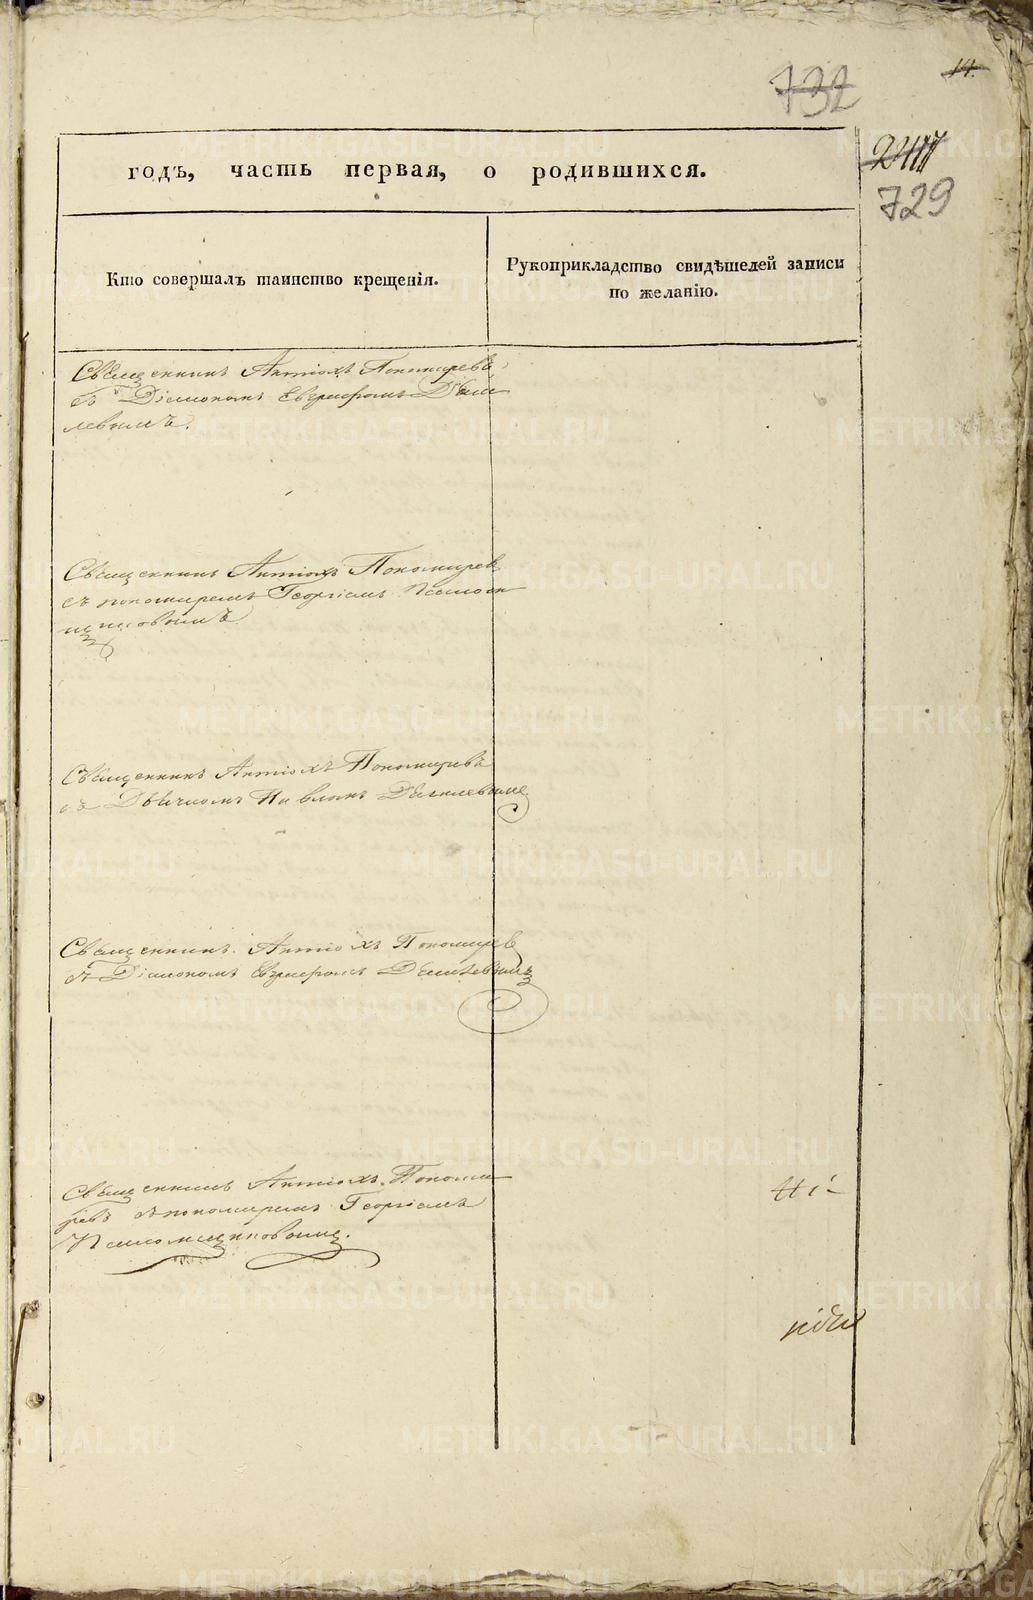 14.
732
2417
729
годъ, часть первая, о родившихся.
Кто совершалъ таинство крещенія.
Рукоприкладство свидѣтелей записи
по желанію.
Священникъ Антіохъ Пономаревъ
съ Діакономъ Евграфомъ
Священникъ Антіохъ Пономарев
съ пономаремъ Георгіемъ
Священникъ Антіохъ Пономаревъ
съ Дьячкомъ Павломъ
Священникъ Антіохъ Пономарев
съ Діакономъ Евграфомъ
Священникъ Антіохъ Понома
ревъ съ пономаремъ Георгіемъ
METRIKI.GASO-URAL.RU